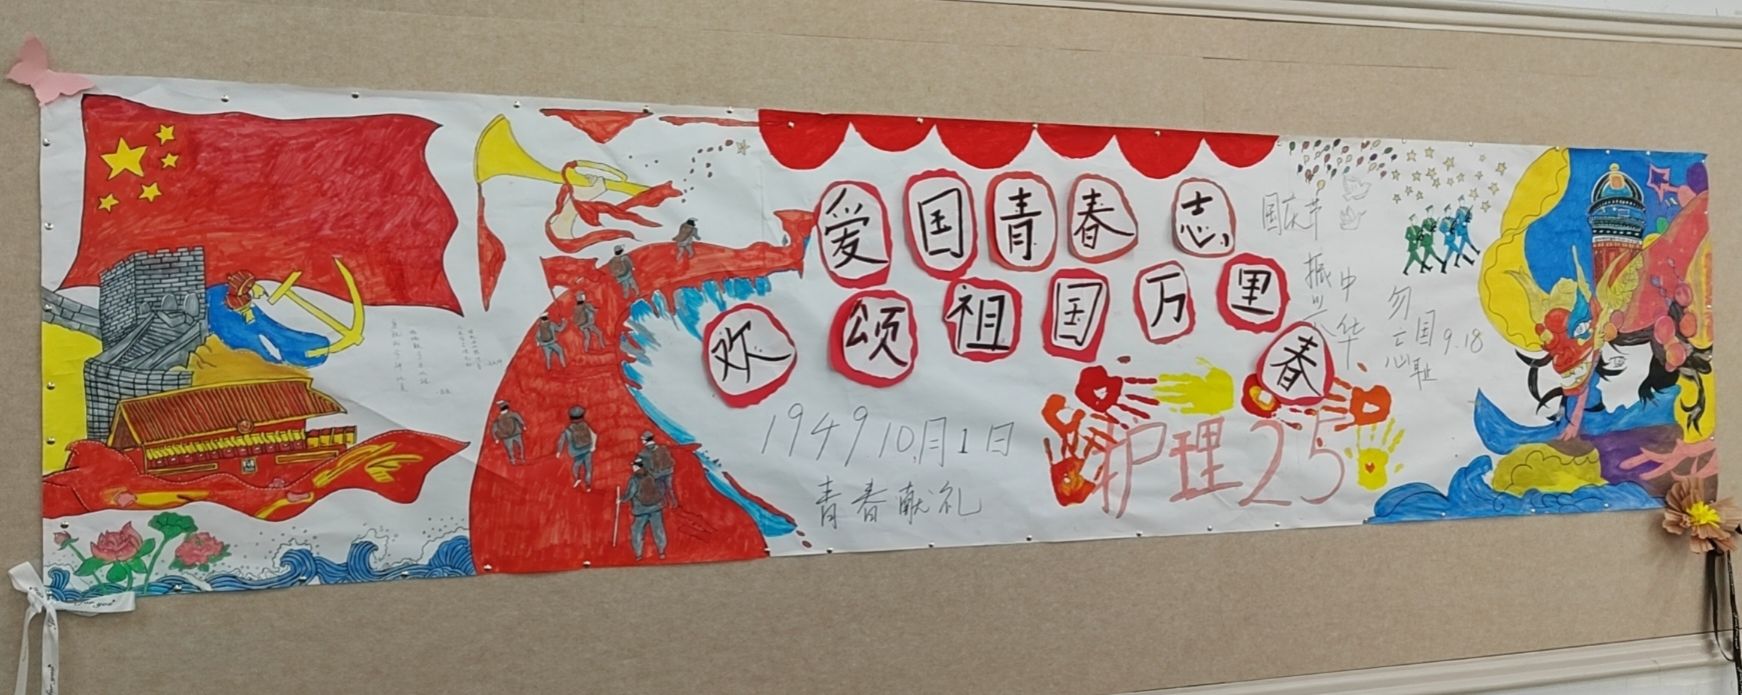 爱国青春志
欢颂祖国万里
春
1949 10月1日
青春献礼
护理25
国庆节
振兴
中华
勿忘
国耻
9.18